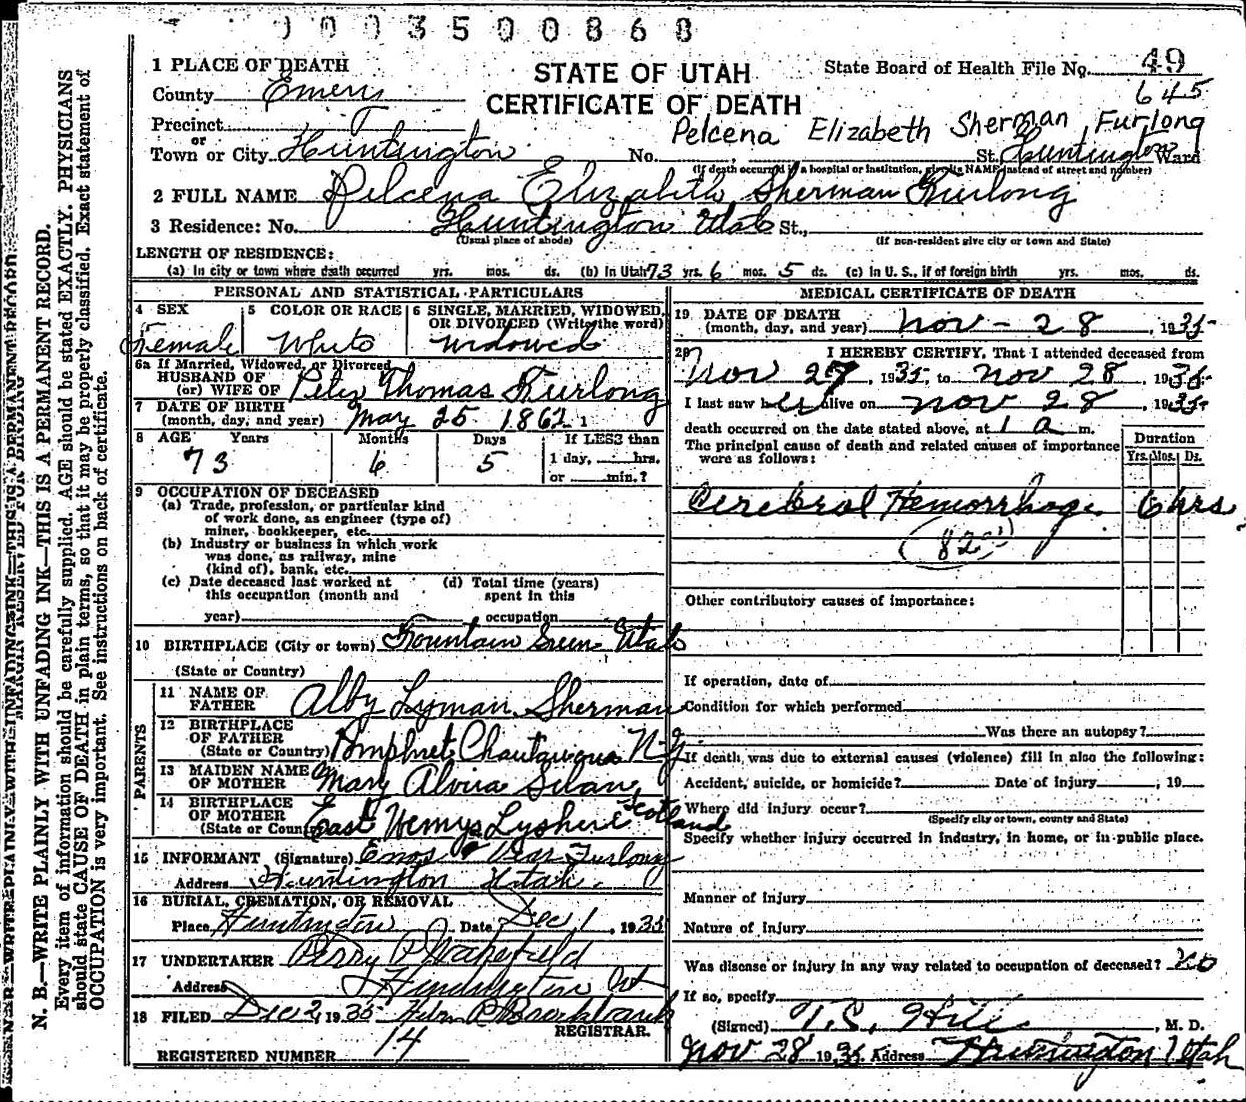 0003500868
1 PLACE OF DEATH
STATE OF UTAH
CERTIFICATE OF DEATH
State Board of Health File No. 49
645
County Emery
Precinct
or
Town or City Huntington No. St. Huntington Ward
Pelcena Elizabeth Sherman Furlong
(If death occurred in a hospital or institution, give its NAME instead of street and number)
2 FULL NAME Pelcena Elizabeth Sherman Furlong
3 Residence: No. Huntington Utah St.,
(Usual place of abode) (If non-resident give city or town and State)
LENGTH OF RESIDENCE:
(a) In city or town where death occurred yrs. mos. ds. (b) In Utah 73 yrs. 6 mos. 5 ds. (c) In U. S., if of foreign birth yrs. mos. ds.
PERSONAL AND STATISTICAL PARTICULARS
4 SEX Female
5 COLOR OR RACE White
6 SINGLE, MARRIED, WIDOWED, OR DIVORCED (Write the word) Widowed
6a If Married, Widowed, or Divorced
HUSBAND OF
(or) WIFE OF Peter Thomas Furlong
7 DATE OF BIRTH
(month, day, and year) May 25 1862
8 AGE Years Months Days If LESS than
73 6 5 1 day, hrs.
or min.?
9 OCCUPATION OF DECEASED
(a) Trade, profession, or particular kind
of work done, as engineer (type of)
miner, bookkeeper, etc.
(b) Industry or business in which work
was done, as railway, mine
(kind of), bank, etc.
(c) Date deceased last worked at
this occupation (month and
year)
(d) Total time (years)
spent in this
occupation
10 BIRTHPLACE (City or town) Fountain Green Utah
(State or Country)
PARENTS
11 NAME OF
FATHER Alby Lyman Sherman
12 BIRTHPLACE
OF FATHER
(State or Country) Pomphret Chautauqua N.Y.
13 MAIDEN NAME
OF MOTHER Mary Alvira
14 BIRTHPLACE
OF MOTHER
(State or Country) East Wemys Scotland
15 INFORMANT (Signature) Enos Furlong
Address Huntington Utah.
16 BURIAL, CREMATION, OR REMOVAL
Place Huntington Date Dec 1, 1935
17 UNDERTAKER Perry P Wakefield
Address Huntington Ut
18 FILED Dec 2, 1935 Brockbank
REGISTRAR.
REGISTERED NUMBER 14
MEDICAL CERTIFICATE OF DEATH
19 DATE OF DEATH
(month, day, and year) Nov - 28, 1935
20 I HEREBY CERTIFY, That I attended deceased from
Nov 27, 1935, to Nov 28, 1935
I last saw her alive on Nov 28, 1935
death occurred on the date stated above, at 1 a m.
The principal cause of death and related causes of importance
were as follows:
Duration
Yrs. Mos. Ds.
Cerebral Hemorrhage 6 hrs
Other contributory causes of importance:
If operation, date of
Condition for which performed
Was there an autopsy?
If death was due to external causes (violence) fill in also the following:
Accident, suicide, or homicide? Date of injury, 19
Where did injury occur?
(Specify city or town, county and State)
Specify whether injury occurred in industry, in home, or in public place.
Manner of Injury
Nature of Injury
Was disease or injury in any way related to occupation of deceased? no
If so, specify
(Signed) T.C. Hill, M. D.
Nov 28 1935 Address Huntington Utah
N. B.—WRITE PLAINLY WITH UNFADING INK—THIS IS A PERMANENT RECORD.
Every item of information should be carefully supplied. AGE should be stated EXACTLY. PHYSICIANS
should state CAUSE OF DEATH in plain terms, so that it may be properly classified. Exact statement of
OCCUPATION is very important. See instructions on back of certificate.
MARGIN RESERVED FOR BINDING